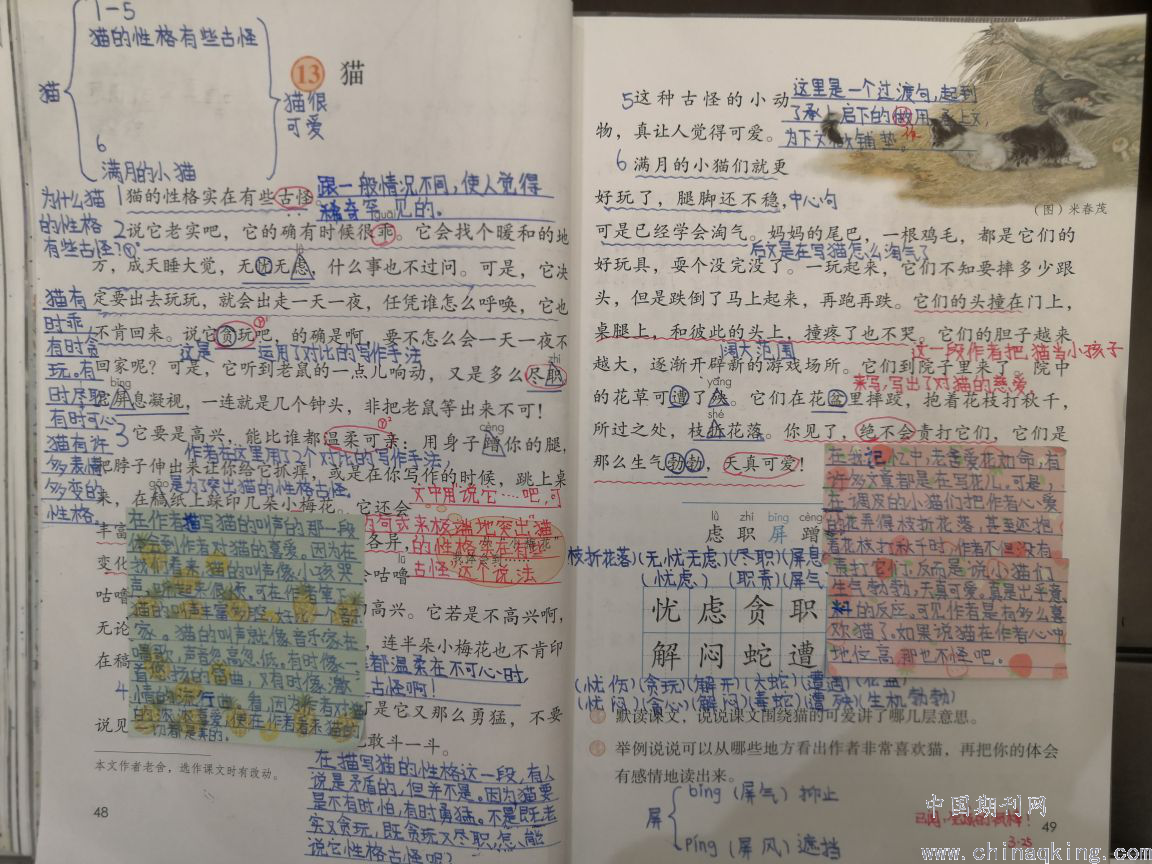 1-5
猫的性格有些古怪
猫
猫很
可爱
6
满月的小猫
13 猫
为什么猫
的性格
有些古怪?
1猫的性格实在有些古怪。
跟一般情况不同,使人觉得
稀奇罕见的。
guāi
2说它老实吧,它的确有时候很乖。它会找个暖和的地
方,成天睡大觉,无忧无虑,什么事也不过问。可是,它决
定要出去玩玩,就会出走一天一夜,任凭谁怎么呼唤,它也
不肯回来。说它贪玩吧,的确是啊,要不怎么会一天一夜不
这是 运用了对比的写作手法
回家呢?可是,它听到老鼠的一点儿响动,又是多么尽职
zhí
bǐng
它屏息凝视,一连就是几个钟头,非把老鼠等出来不可!
猫有
时乖,
有时贪
玩。有
时尽职
有时可心
猫有许
多表情
多变的
性格。
cèng
3它要是高兴,能比谁都温柔可亲:用身子蹭你的腿,
作者在这里用了2个对比的写作手法,
把脖子伸出来让你给它抓痒,或是在你写作的时候,跳上桌
是为了突出猫的性格古怪
gǎo
来,在稿纸上踩印几朵小梅花。它还会
丰富
各异,
变化
咕噜
lū
咕噜
高兴。它若是不高兴啊,
无论
连半朵小梅花也不肯印
在稿
都温柔在不可心时,
古怪啊!
4
可是它又那么勇猛,不要
说见
也敢斗一斗。
文中用说它……吧,可
的句式来极端地突出猫
的性格实在有些
古怪 这个说法
在作者描写猫的叫声的那一段
体会到作者对猫的喜爱。因为在
我们看来,猫的叫声像小孩哭
猫的叫声丰富多腔,好
家。猫的叫声就像音乐家在
唱歌,声音忽高忽低。有时像一
曲,又有时像激
情的流行曲。看,因为作者对猫
喜爱,使在作者看来猫的
一切都是美的。
在描写猫的性格这一段,有人
说是矛盾的,但并不是。因为猫要
是不有时怕,有时勇猛。不是既老
实又贪玩,既贪玩又尽职,怎能
说它性格古怪呢?
本文作者老舍,选作课文时有改动。
48
5这种古怪的小动
物,真让人觉得可爱。
这里是一个过渡句,起到
了承上启下的做用。承上文,
作
为下文做铺垫。
6满月的小猫们就更
好玩了,腿脚还不稳,
中心句
(图)米春茂
可是已经学会淘气。妈妈的尾巴,一根鸡毛,都是它们的
后文是在写猫怎么淘气了
好玩具,耍个没完没了。一玩起来,它们不知要摔多少跟
头,但是跌倒了马上起来,再跑再跌。它们的头撞在门上,
桌腿上,和彼此的头上,撞疼了也不哭。它们的胆子越来
阔大范围
这一段作者把猫当小孩子
越大,逐渐开辟新的游戏场所。它们到院子里来了。院中
来写,写出了对猫的慈爱。
yāng
的花草可遭了殃。它们在花盆里摔跤,抱着花枝打秋千,
shé
所过之处,枝折花落。你见了,绝不会责打它们,它们是
那么生气勃勃,天真可爱!
在我记忆中,老舍爱花如命,有
许多文章都是在写花儿。可是
调皮的小猫们把作者心爱
的花弄得枝折花落,甚至还抱
着花枝打秋千时,作者不但没有
责打它们,反而是说小猫们
生气勃勃,天真可爱。真是出乎意
料的反应。可见作者是有多么喜
欢猫了。如果说猫在作者心中
地位高,那也不怪吧。
lǜ zhí bǐng cèng
虑 职 屏 蹭
枝折花落)(无忧无虑)(尽职)(屏息
(忧虑) (职责)(屏气
忧 虑 贪 职
解 闷 蛇 遭
(忧伤)(贪玩)(解开)(大蛇)(遭遇)(花盆)
(忧闷)(贪心)(解闷)(毒蛇)(遭殃)(生机勃勃)
默读课文,说说课文围绕猫的可爱讲了哪几层意思。
举例说说可以从哪些地方看出作者非常喜欢猫,再把你的体会
有感情地读出来。
屏
bǐng(屏气)抑止
píng(屏风)遮挡
中国期刊网
3.25
49
www.chinaqking.com